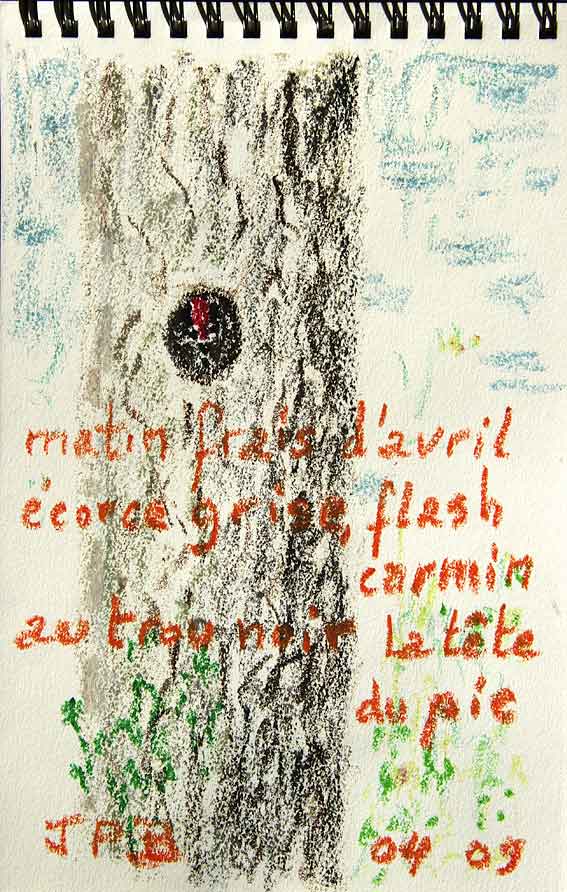 matin frais d'avril
écorce grise, flash
carmin
au trou noir la tête
du pic
JPB 04 09